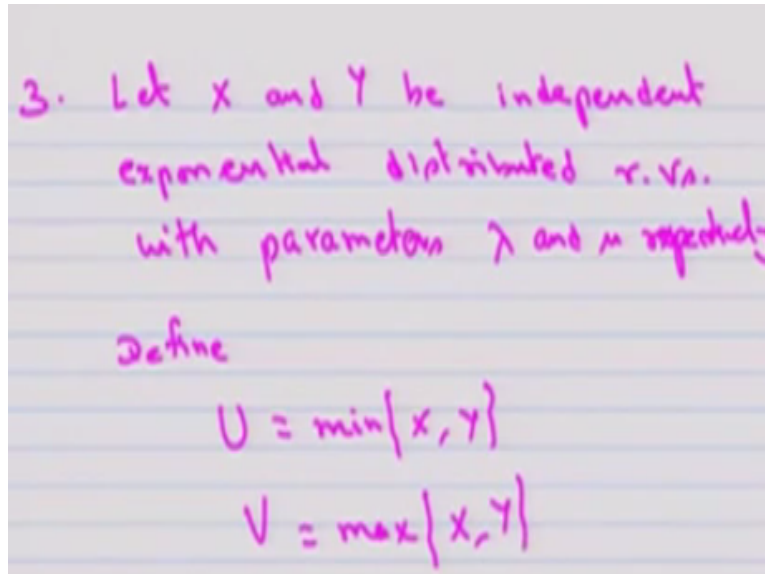 3. Let X and Y be independent
exponential distributed r.vs.
with parameters λ and μ respectively
Define
U = min{X, Y}
V = max{X, Y}